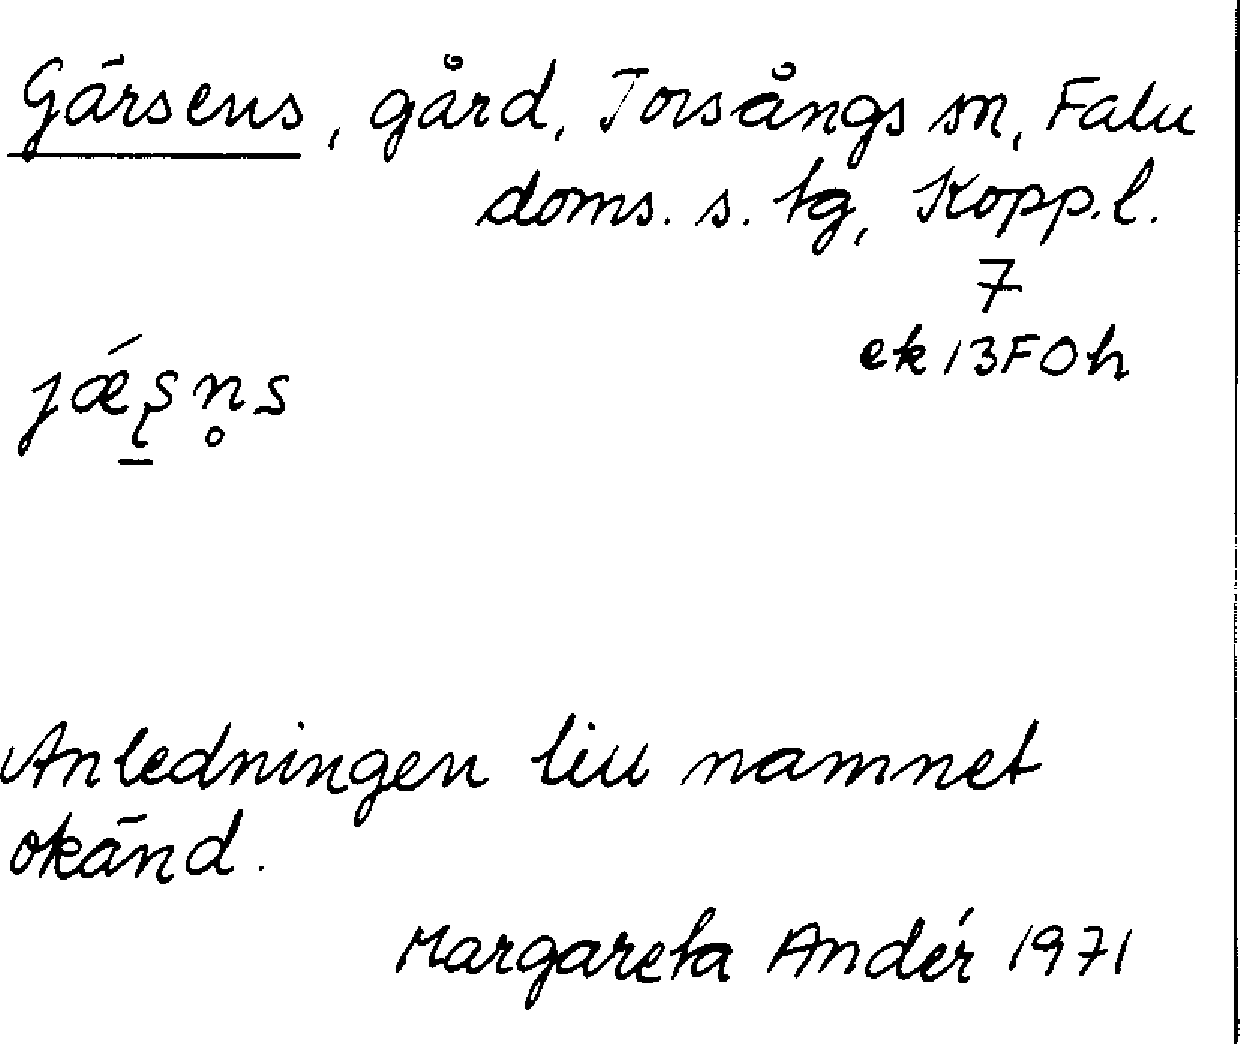 Gärsens, gård, Torsångs sn, Falu
doms. s. tg, Kopp.l.
7
ek 13F0h
jǽʂn̥s
Anledningen till namnet
okänd.
Margareta Andér 1971